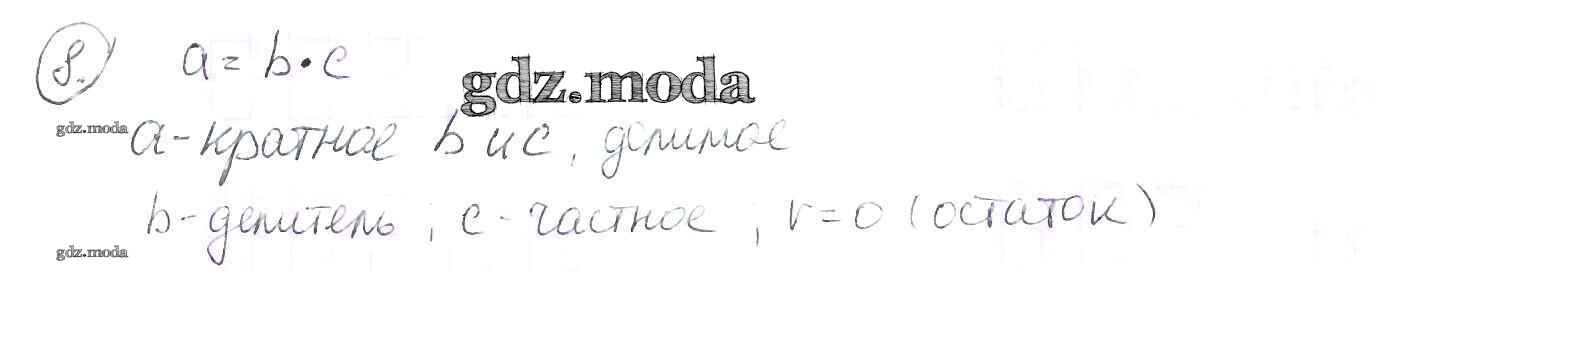 8. a = b · c
gdz.moda
gdz.moda
a - кратное b и c, делимое
b - делитель; c - частное; r = 0 (остаток)
gdz.moda